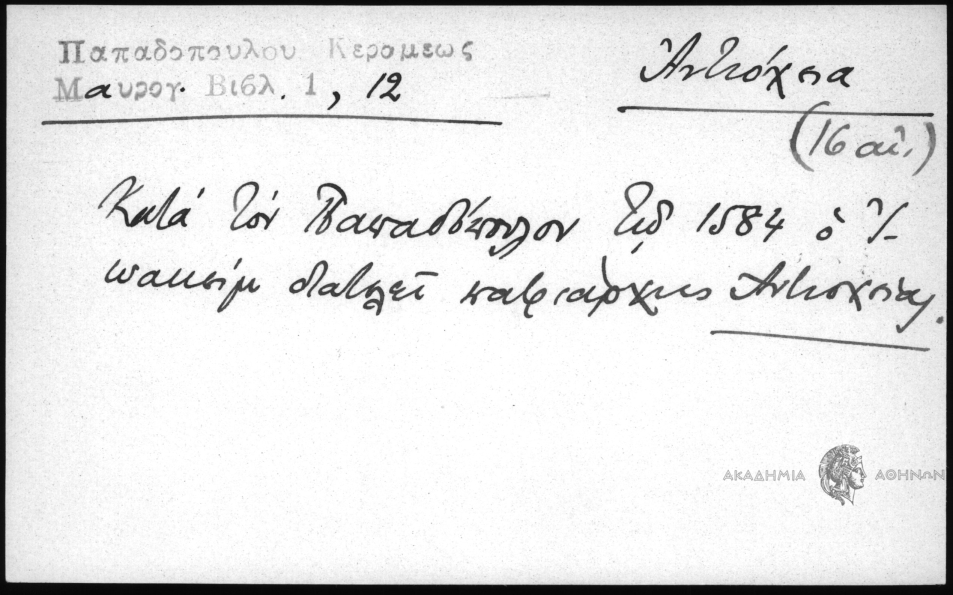 Παπαδοπουλου Κεραμεως
Μαυρογ. Βιβλ. 1, 12
Ἀντιόχεια
(16 αἰ.)
Κατὰ τὸν Παπαδόπουλον τῷ 1584 ὁ Ἰ-
ωακεὶμ διατελεῖ πατριάρχης Ἀντιοχείας.
ΑΚΑΔΗΜΙΑ ΑΘΗΝΩΝ